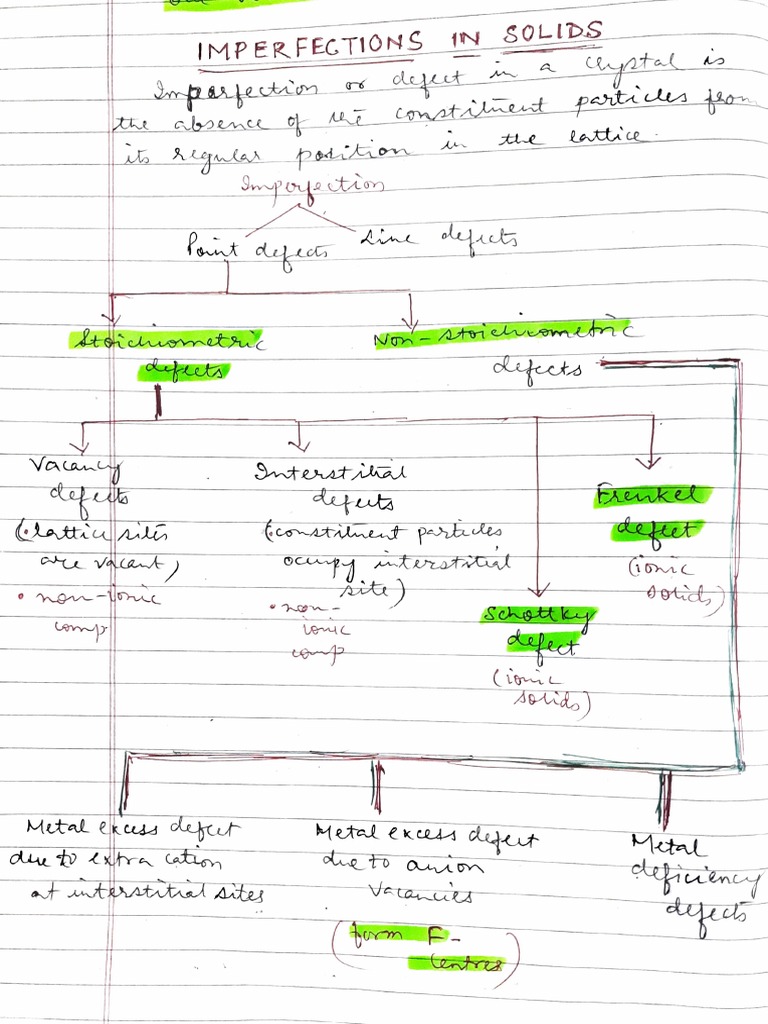 IMPERFECTIONS IN SOLIDS
Imperfection or defect in a crystal is
the absence of the constituent particles from
its regular position in the lattice.
Imperfection
Point defects Line defects
Stoichiometric
defects
Non-stoichiometric
defects
Vacancy
defects
(•lattice sites
are vacant)
• non-ionic
comp
Interstitial
defects
(•constituent particles
occupy interstitial
site)
• non-
ionic
comp
Schottky
defect
(ionic
solids)
Frenkel
defect
(ionic
solids)
Metal excess defect
due to extra cation
at interstitial sites
Metal excess defect
due to anion
vacancies
(form F-
centres)
Metal
deficiency
defects